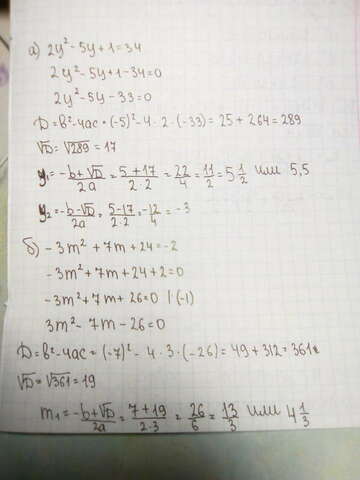 а) 2y² - 5y + 1 = 34
2y² - 5y + 1 - 34 = 0
2y² - 5y - 33 = 0
D = b² - 4ac = (-5)² - 4 · 2 · (-33) = 25 + 264 = 289
√D = √289 = 17
y₁ = -b+√D/2a = 5+17/2·2 = 22/4 = 11/2 = 5 1/2 или 5,5
y₂ = -b-√D/2a = 5-17/2·2 = -12/4 = -3
б) -3m² + 7m + 24 = -2
-3m² + 7m + 24 + 2 = 0
-3m² + 7m + 26 = 0 | (-1)
3m² - 7m - 26 = 0
D = b² - 4ac = (-7)² - 4 · 3 · (-26) = 49 + 312 = 361
√D = √361 = 19
m₁ = -b+√D/2a = 7+19/2·3 = 26/6 = 13/3 или 4 1/3